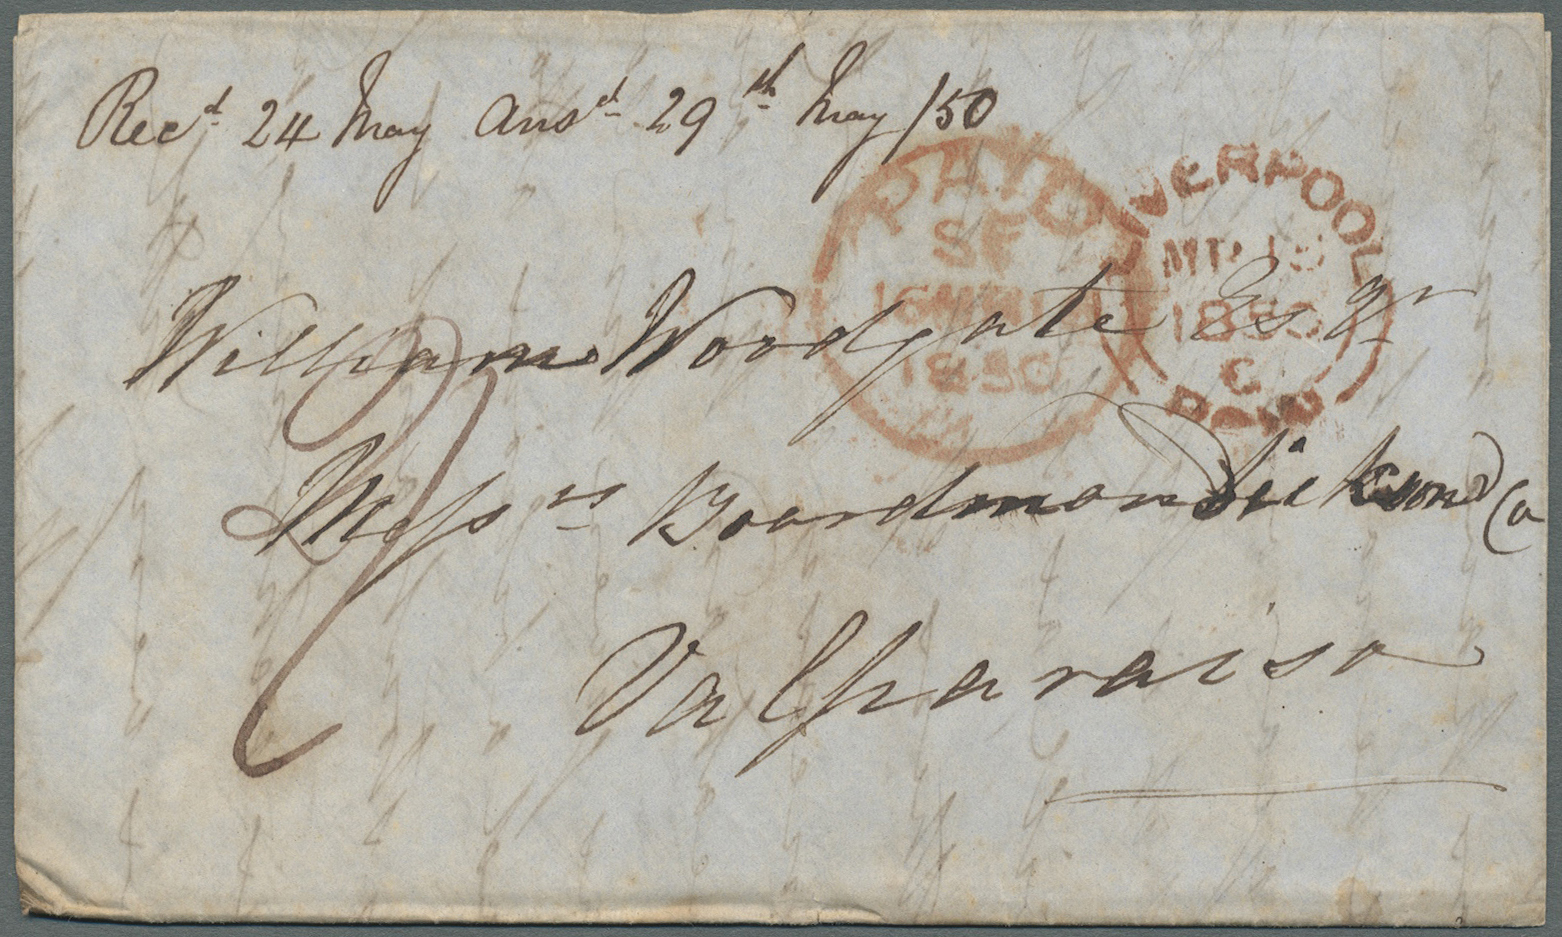 Recd 24 May Ansd 29th May /50
PAID
SF
16 MR 16
1850
LIVERPOOL
MR 15
1850
C
PAID
William Woodgate Esqr
Messrs Boardman Dickson & Co
Valparaiso